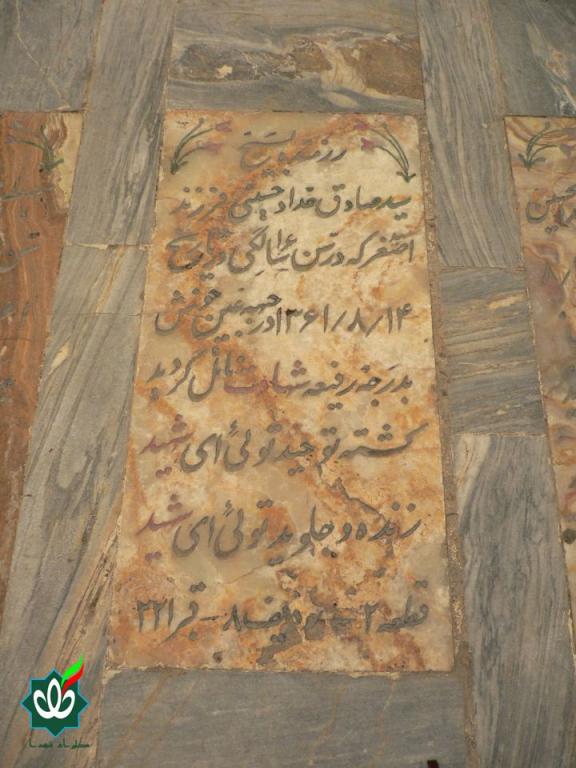 رزمنده بسیج
سید صادق خداد حسینی فرزند
اصغر که در سن ۱۶ سالگی در تاریخ
۱۳۶۱/۸/۱۴ در جبهه عین خوش
بدرجه رفیعه شهادت نائل گردید
کشته توحید توئی ای شهید
زنده و جاوید توئی ای شهید
قطعه ۲ ردیف ۸ - قبر ۲۲۱